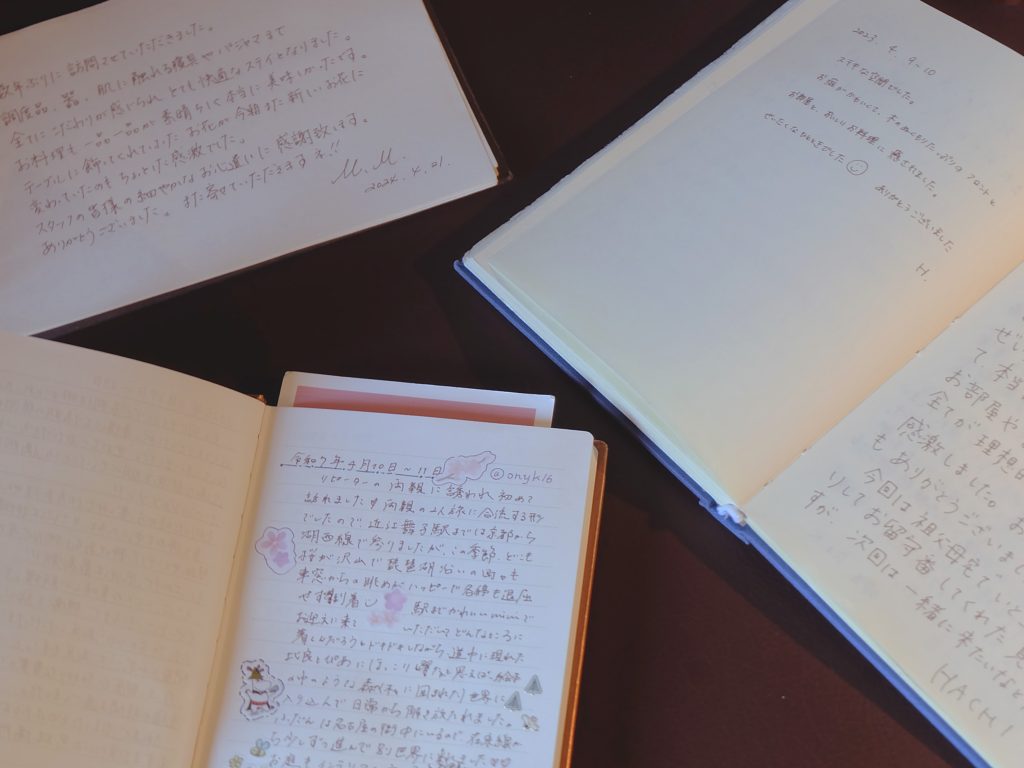 数年ぶりに訪問させていただきました。
調度品、器、肌に触れる寝具やパジャマまで
全てにこだわりが感じられ、とても快適なステイとなりました。
お料理も一品一品が素晴らしく本当に美味しかったです。
テーブルに飾ってくれていたお花が今朝また新しいお花に
変わっていたのもちょっとした感激でした。
スタッフの皆様の細やかなお心遣いに感謝致します。
ありがとうございました。また寄せていただきますネ!!
M.M.
2024.4.21.
2023.4.9-10
ステキな空間でした。
お庭が
お部屋と、おいしいお料理に癒されました。
ぜいたくなひとときでした
ありがとうございました
H.
ぜい
て本当
お部屋や
全てが理想
感激しました。お
もありがとうございまし
今回は祖父母宅でいと
りしてお留守番してくれた
すが、次回は一緒に来たいなと
HACHI
令和7年4月10日～11日 @onyk16
リピーターの両親に誘われ初めて
訪れました 両親の2人旅に合流する形
でしたので、近江舞子駅までは京都から
湖西線で参りましたが、この季節、どこも
桜が沢山で琵琶湖沿いの町々も
車窓からの眺めがハッピーで名残も退座
せず到着 駅までかわいいminiで
お迎えに来て いただいてどんなところに
着くのだろうとドキドキしながら、道中に現れた
の中のような森(林)に囲まれた世界に
入り込んで日常から解き放たれました。
ふだんは名古屋の街中にいるので、在来線か
ら少しずつ進んで別世界に